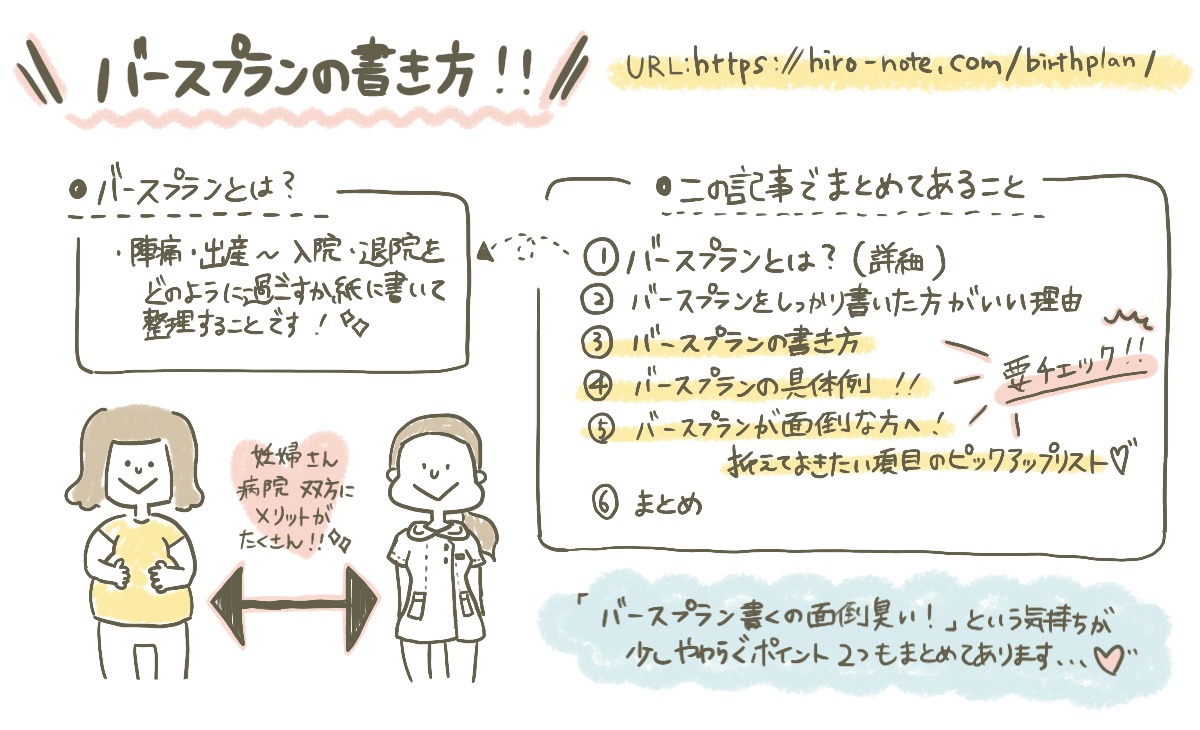 バースプランの書き方!!
URL:https://hiro-note.com/birthplan/
バースプランとは?
・陣痛・出産～入院・退院を
どのように過ごすか、紙に書いて
整理することです!
この記事でまとめてあること
① バースプランとは?(詳細)
② バースプランをしっかり書いた方がいい理由
③ バースプランの書き方
④ バースプランの具体例!!
⑤ バースプランが面倒な方へ!
抑えておきたい項目のピックアップリスト♡
⑥ まとめ
要チェック!!
妊婦さん
病院 双方に
メリットが
たくさん!!
「バースプラン書くの面倒臭い!」という気持ちが
少しやわらぐポイント2つもまとめてあります...♡